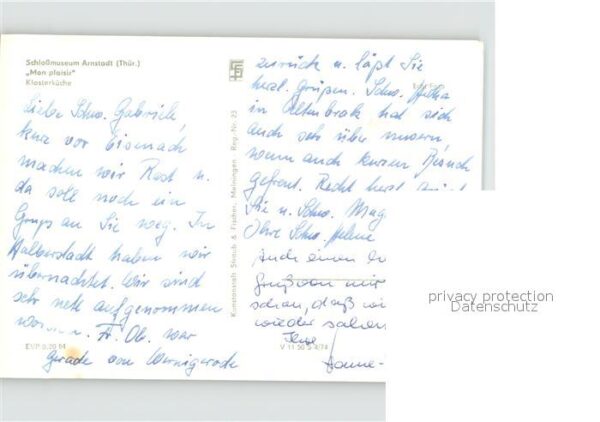 Schloßmuseum Arnstadt (Thür.)
„Mon plaisir“
Klosterküche
Liebe Schw. Gabriele,
kurz vor Eisenach
machen wir Rast u.
da soll noch ein
Gruß an Sie weg. In
Halberstadt haben wir
übernachtet. Wir sind
sehr nett aufgenommen
worden. Fr. Ob. war
gerade von Wernigerode
EVP 0,20 M
Kunstanstalt Straub & Fischer, Meiningen Reg.-Nr. 25
zurück u. läßt Sie
herzl. grüßen. Schw.
in Altenbrak hat sich
auch sehr über unseren,
wenn auch kurzen Besuch
gefreut. Recht herzl.
Sie u. Schw. Mag
Ihre Schw. Helene
Auch einen
Gruß von mir
schön, daß wi
wieder sahen
Ihre
Hanne-
V 11 50 S 4/74
privacy protection
Datenschutz